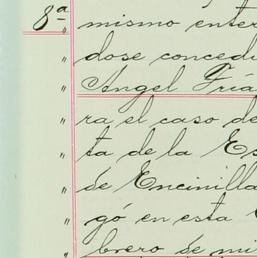 8ª mismo enter
" dose concedi
" Angel Tría
" ra el caso de
" ta de la Es
" de Encinilla
" gó en esta
" brero se mi